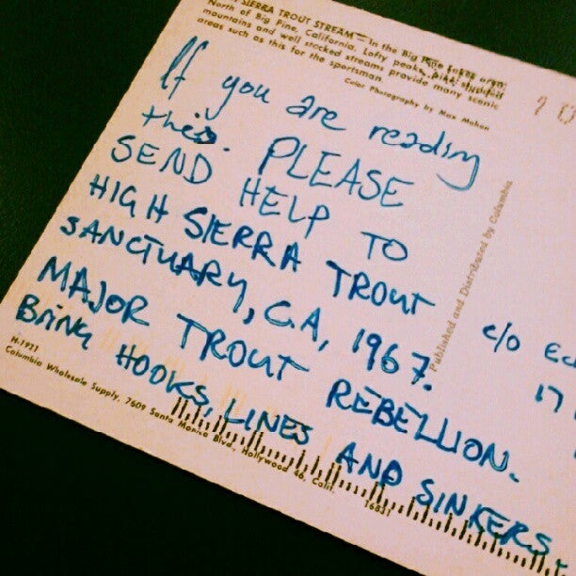 SIERRA TROUT STREAM — In the Big Pine Lakes area
North of Big Pine, California. Lofty peaks,
mountains and well stocked streams provide many scenic
areas such as this for the sportsman
Color Photography by Max Mahan
If you are reading
this. PLEASE
SEND HELP TO
HIGH SIERRA TROUT
SANCTUARY, CA, 1967.
MAJOR TROUT REBELLION.
BRING HOOKS, LINES AND SINKERS.
H-1931
Columbia Wholesale Supply, 7609 Santa Monica Blvd., Hollywood 46, Calif.
16831
Published and Distributed by Columbia
c/o
17